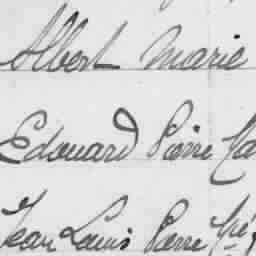 Albert Marie
Edouard Pierre Ca
Jean Louis Pierre